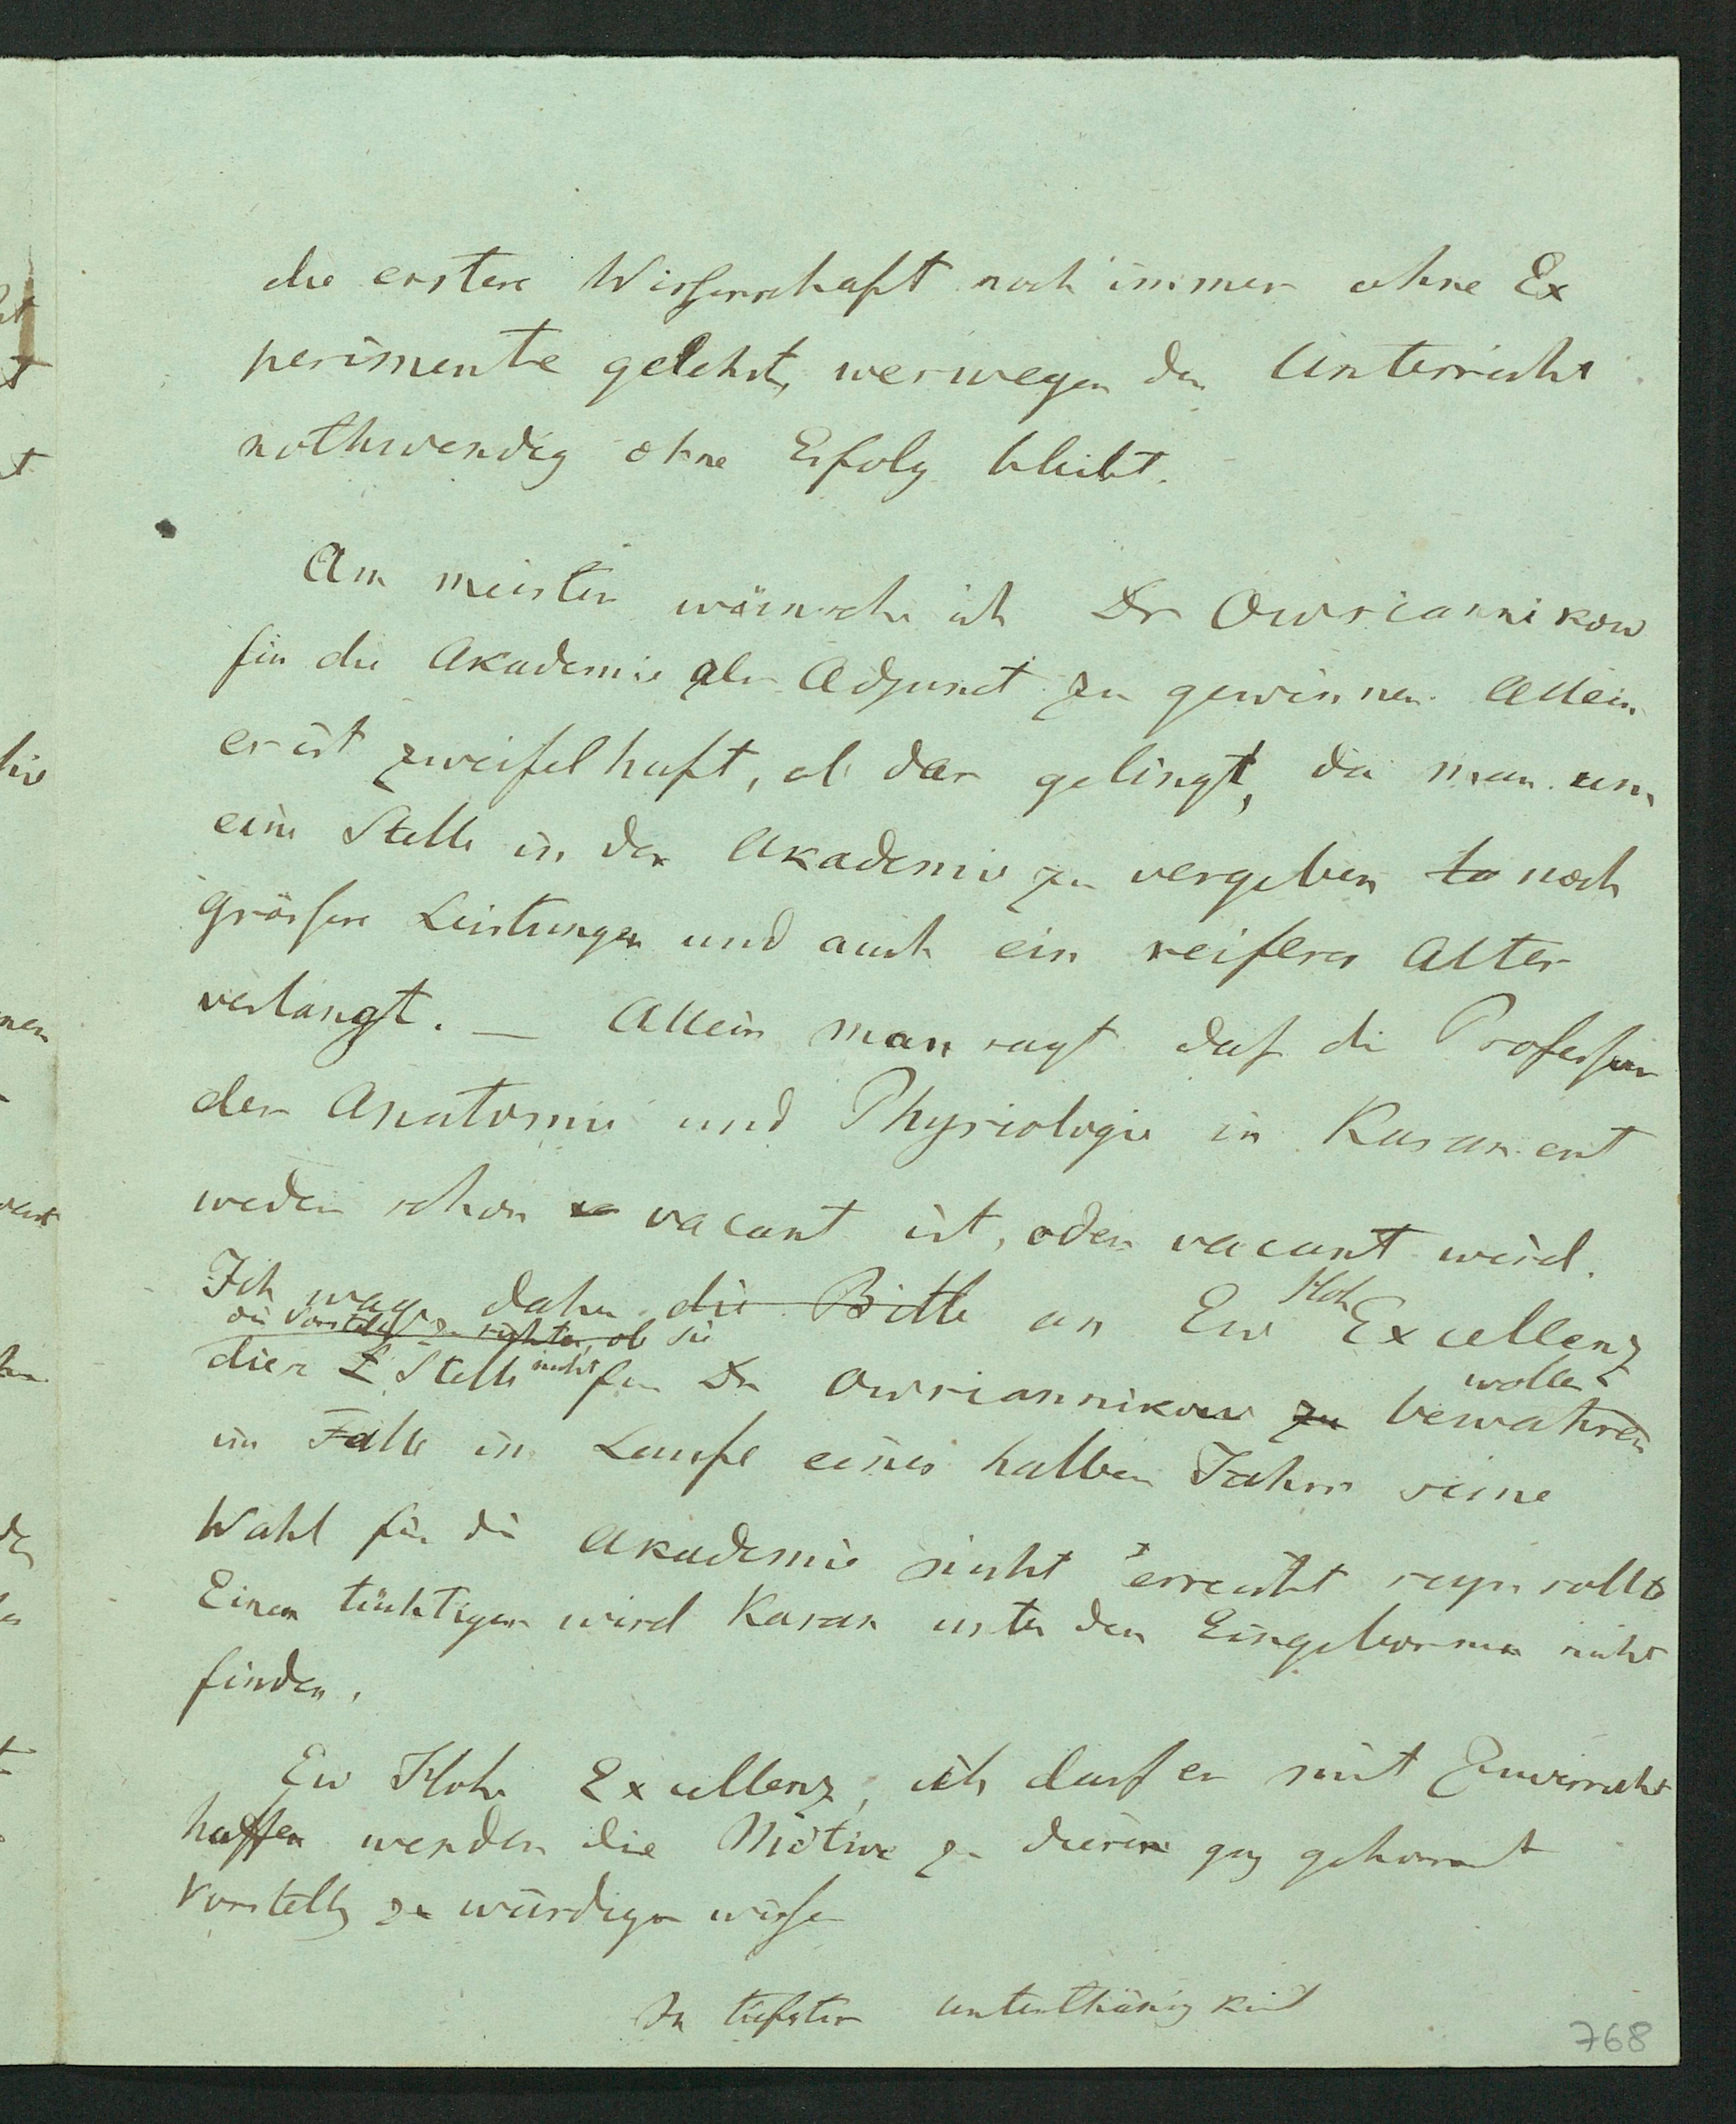 die erstere Wissenschaft noch immer ohne Ex
perimente gelehrt, weswegen der Unterricht
nothwendig ohne Erfolg bleibt.
Am meisten wünsche ich Dr Owsiannikow
für die Akademie als Adjunct zu gewinnen. Allein
es ist zweifelhaft, ob das gelingt, da man um
eine Stelle in der Akademie zu vergeben noch
grössere Leistungen und auch ein reiferes Alter
verlangt. — Allein man sagt daß die Professur
der Anatomie und Physiologie in Kasan ent
weder schon vacant ist, oder vacant wird.
Ich wage daher die Bitte an Ew Hohe Excellenz
die Vorstellg zu richten, ob sie
diese Stelle nicht für Dr Owsiannikow zu bewahren wollen
im Falle im Laufe eines halben Jahres seine
Wahl für die Akademie nicht erreicht seyn sollte
Einen tüchtigern wird Kasan unter den Eingebornen nicht
finden.
Ew Hohe Excellenz, ich darf es mit Zuversicht
hoffen werden die Motive zu dieser ganz gehorsamst
Vorstellg zu würdigen wissen
In tiefster Unterthänigkeit
768